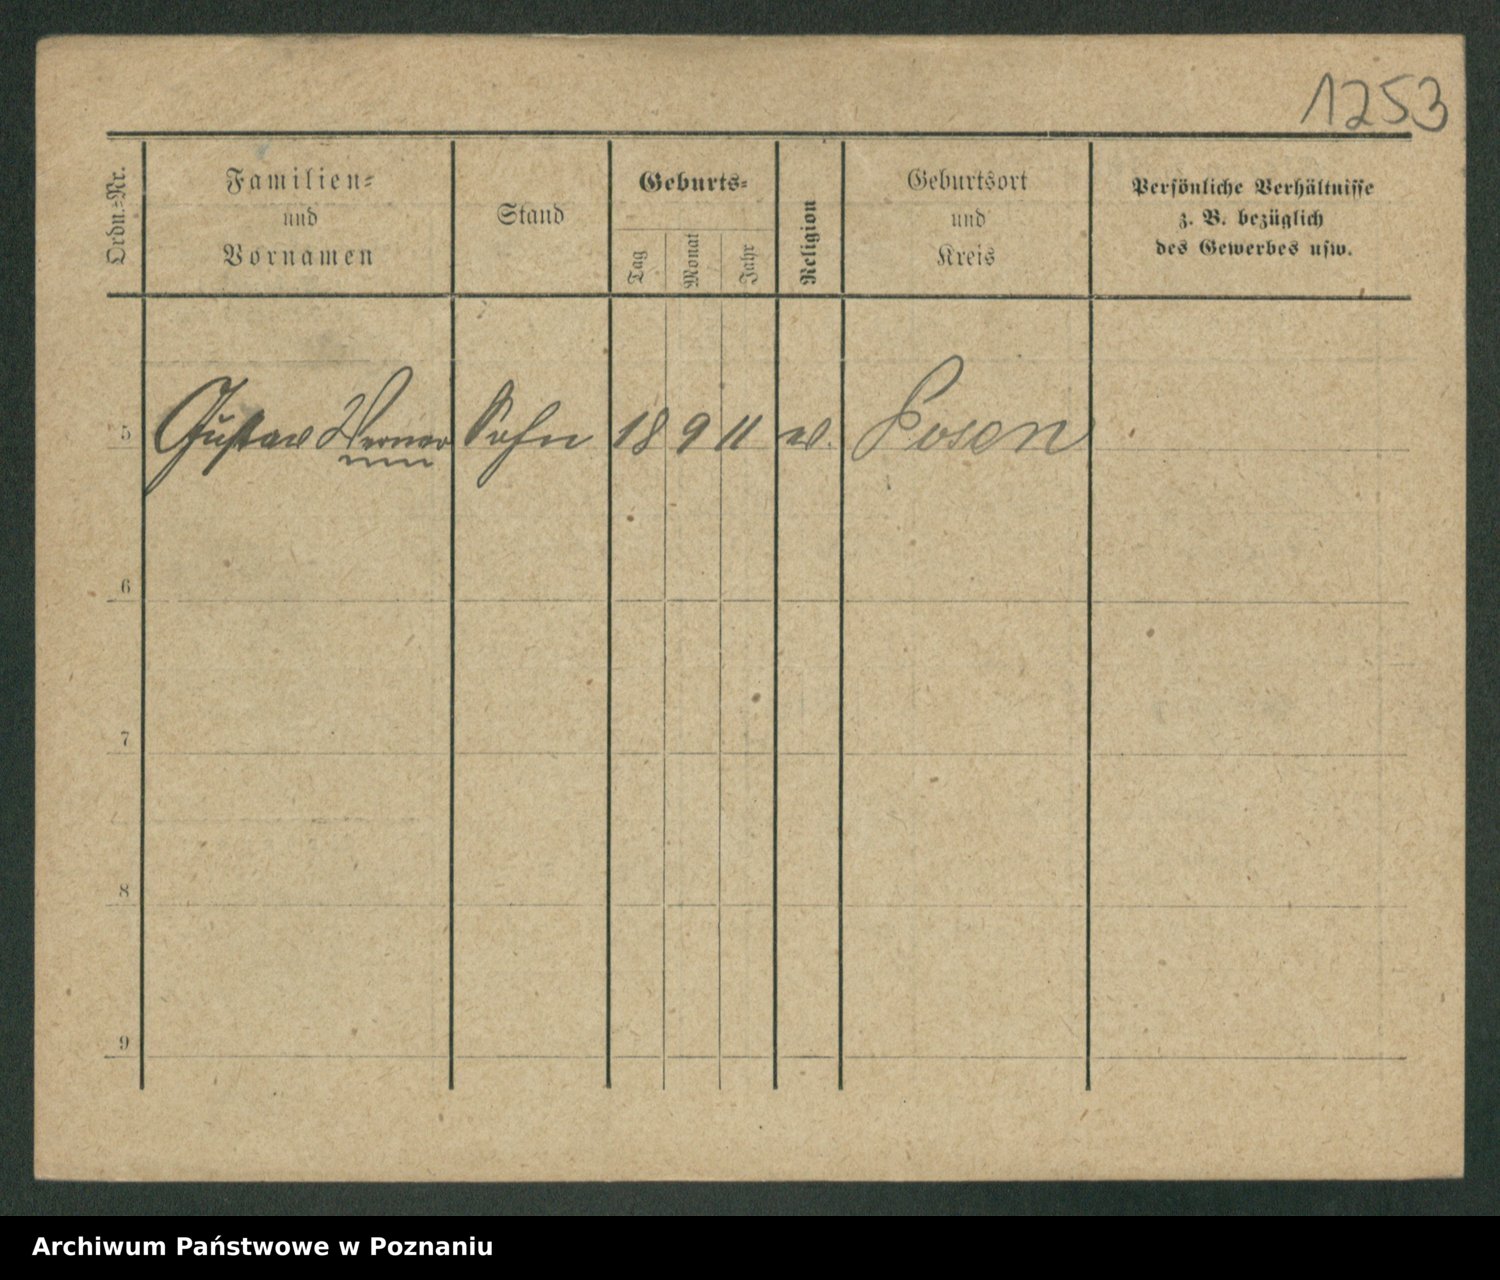 1253
Ordn.-Nr.
Familien-
und
Vornamen
Stand
Geburts-
Tag
Monat
Jahr
Religion
Geburtsort
und
Kreis
Persönliche Verhältnisse
z. B. bezüglich
des Gewerbes usw.
5 Gustav Werner Sohn 18 9 11 Posen
6
7
8
9
Archiwum Państwowe w Poznaniu